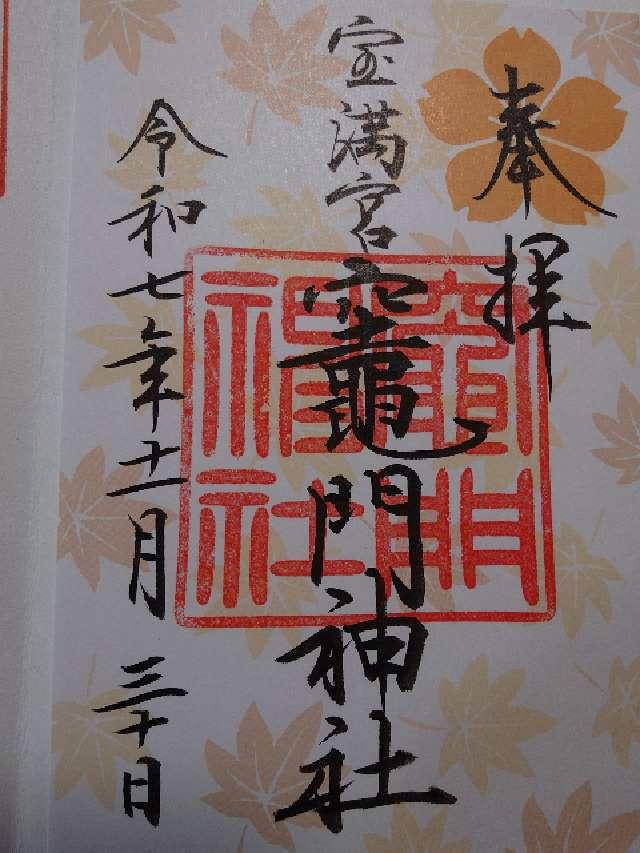 奉拝
宝満宮
竈門神社
竈門神社
令和七年十一月三十日